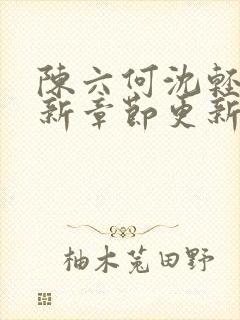 陳六何沈輕
新章節更新
柚木菟田野